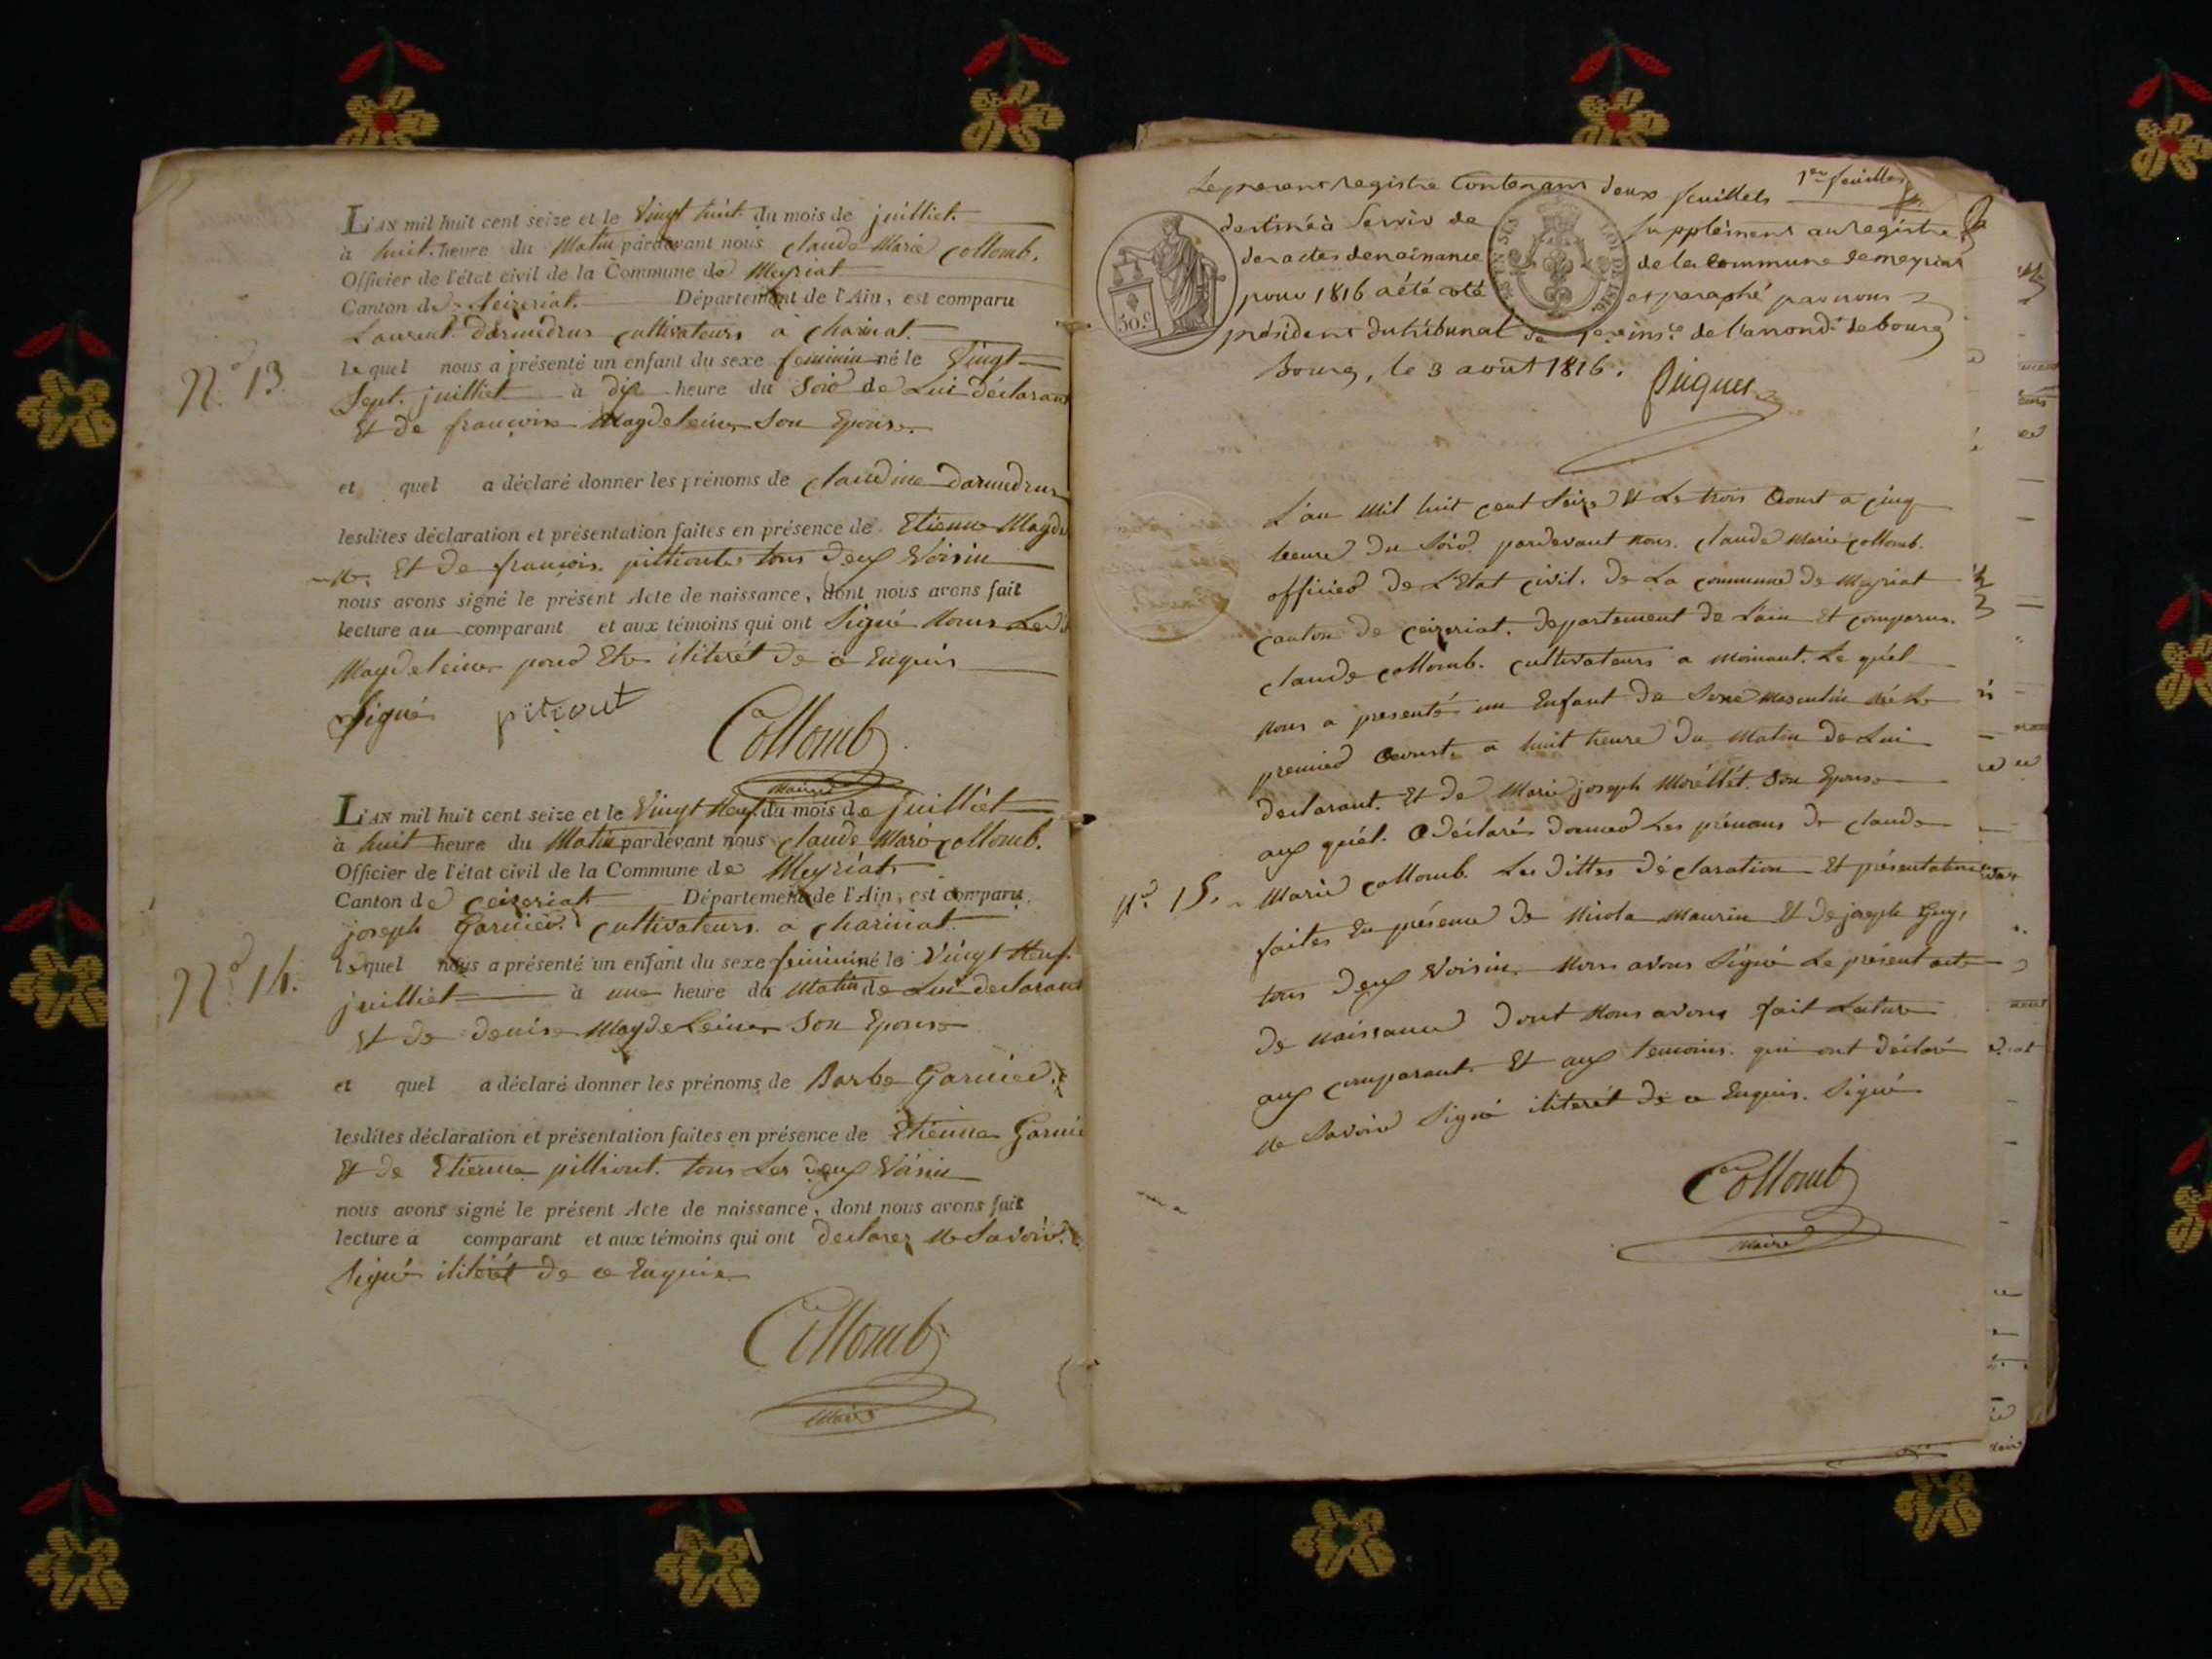 L'AN mil huit cent seize et le Vingt huit du mois de juilliet
à huit heure du Matin pardevant nous Claude Marie Collomb.
Officier de l'état civil de la Commune de Meyriat
Canton de Ceizeriat. Département de l'Ain, est comparu
Laurent Darnudrus cultivateurs a Charinat.
le quel nous a présenté un enfant du sexe feminin né le Vingt
N.o 13.
Sept juilliet à dix heure du Soir de Lui déclarant
Et de françoise Magdeleine Son Epouse.
et quel a déclaré donner les prénoms de Claudine
lesdites déclaration et présentation faites en présence de Etienne Magde
Et de françois pilliout tous deux Voisin
nous avons signé le présent Acte de naissance, dont nous avons fait
lecture au comparant et aux témoins qui ont Signé Nous
Magdeleine pour Etre iliterét de ce Enquis
Signé pitiout
Collomb
Maire
L'AN mil huit cent seize et le Vingt Neuf du mois de Juilliet
à huit heure du Matin pardevant nous Claude Marie Collomb.
Officier de l'état civil de la Commune de Meyriat
Canton de Ceizeriat Département de l'Ain, est comparu
joseph Garnier. Cultivateurs a Charinat
lequel nous a présenté un enfant du sexe feminin né le Vingt Neuf.
N.o 14.
juilliet à une heure du Matin de Lui declarant
Et de denise Magdeleine Son Epouse
et quel a déclaré donner les prénoms de Barbe Garnier.
lesdites déclaration et présentation faites en présence de Etienne Garnie
Et de Etienne pilliout. tous Les deux Voisin
nous avons signé le présent Acte de naissance, dont nous avons fait
lecture a comparant et aux témoins qui ont declarez Ne Savoir
Signé iliterét de ce Enquis
Collomb
Maire
Le present registre Contenant deux feuillets 1er feuillet
destiné à Servir de Supplément au registre
des actes de naissance de la commune de meyriat
pour 1816 a été coté et paraphé par nous
président du tribunal de 1ere ins.ce de l'arrond.t de bourg
Bourg, le 3 août 1816.
50.C
LOI DE 1816.
L'an Mil huit Cent Seize Et Le trois Aoust a Cinq
heure du Soir pardevant Nous. Claude Marie Collomb.
officier de L'Etat Civil. de La Commune de Meyriat
Canton de Ceizeriat. departement de Lain Et Comparus.
Claude Collomb. Cultivateurs a Moinant. Le quél
Nous a presenté un Enfant du Sexe Masculin Né Le
premier Aoust a huit heure du Matin de Lui
declarant. Et de Marie joseph Moréllét. Son Epouse
aux quél. A déclaré donner Les prénoms de Claude
N.o 15. Marie Collomb. Les dittes déclaration Et présentation
faites En présence de Nicola Maurin Et de joseph Guy,
tous deux Voisin. Nous avons Signé Le présent acte
de Naissance dont Nous avons fait Lecture
aux Comparant Et aux temoins. qui ont déclaré
Ne Savoir Signé iliterét de ce Enquis. Signé
Collomb
Maire